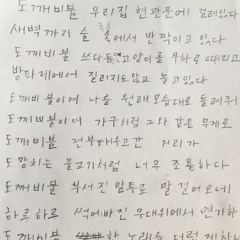 도깨비불 우리집 현관문에 걸려있다
새벽까지 술 속에서 반짝이고 있다
도깨비불 쓰다듬고 고양이를 무화로 때리고
방파제에서 질리지도않고 놀고있다
도깨비불이여 나를 원래모습대로 돌려줘
도깨비불이여 가구처럼 그다 같은 무게로
도깨비불 전부 태우고간 거리가
도망치는 물고기처럼 너무 조용하다
도깨비불 부서진 말투로 말 걸어오네
하르르하르르 썩어빠진 무대위에서 연기하
도깨비불 한 노래를 더럽게하